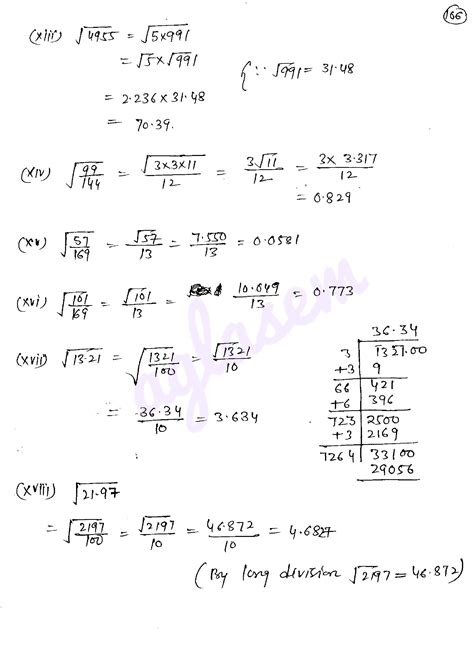 166
(xiii) √4955 = √5×991
= √5 × √991 {∵ √991 = 31.48
= 2.236 × 31.48
= 70.39.
(xiv) √99/144 = √3×3×11/12 = 3√11/12 = 3× 3.317/12
= 0.829
(xv) √57/169 = √57/13 = 7.550/13 = 0.0581
(xvi) √101/169 = √101/13 = 10.049/13 = 0.773
(xvii) √13.21 = √1321/100 = √1321/10
= 36.34/10 = 3.634
36.34
3 1321.00
+3 9
66 421
+6 396
723 2500
+3 2169
7264 33100
29056
(xviii) √21.97
= √2197/100 = √2197/10 = 46.872/10 = 4.6827
(By long division √2197 = 46.872)
aglasem